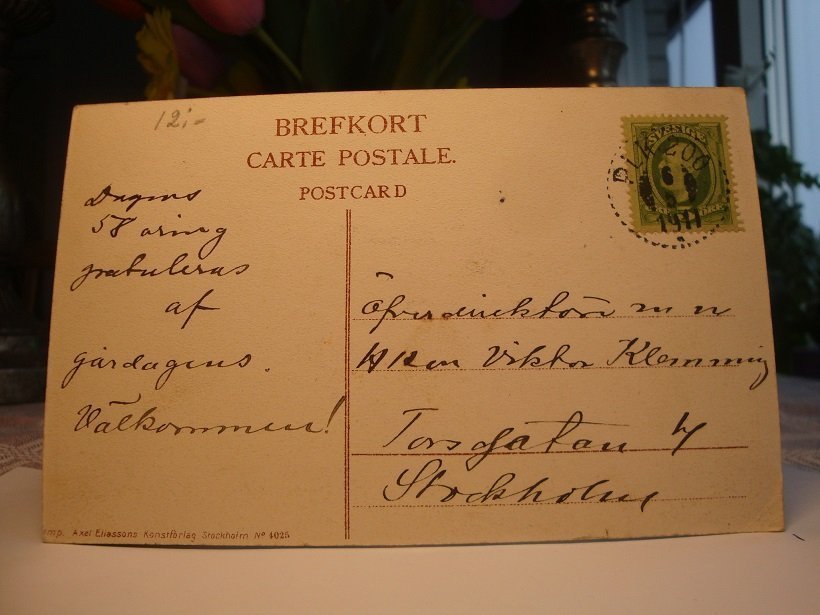 12:-
BREFKORT
CARTE POSTALE.
POSTCARD
SVERIGE
1911
Dagens
58 åring
gratuleras
af
gårdagens.
Välkommen!
Öfverdirektören m m
Viktor Klemming
Torsgatan 4
Stockholm
Imp. Axel Eliassons Konstförlag Stockholm No 4025